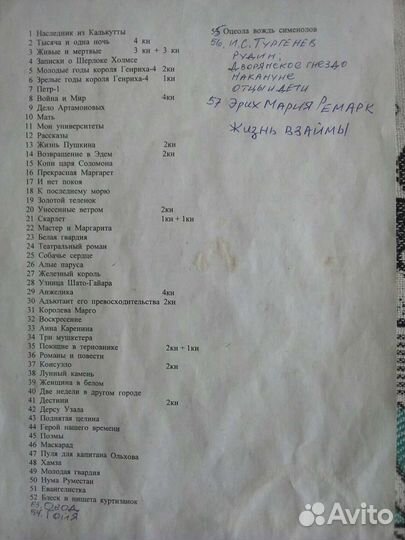 1 Наследник из Калькутты
2 Тысяча и одна ночь 4 кн
3 Живые и мертвые 3 кн + 3 кн
4 Записки о Шерлоке Холмсе
5 Молодые годы короля Генриха-4 1кн
6 Зрелые годы короля Генриха-4 1кн
7 Петр-1
8 Война и Мир 4кн
9 Дело Артамоновых
10 Мать
11 Мои университеты
12 Рассказы
13 Жизнь Пушкина 2кн
14 Возвращение в Эдем 2кн
15 Копи царя Соломона
16 Прекрасная Маргарет
17 И нет покоя
18 К последнему морю
19 Золотой теленок
20 Унесенные ветром 2кн
21 Скарлет 1кн + 1кн
22 Мастер и Маргарита
23 Белая гвардия
24 Театральный роман
25 Собачье сердце
26 Алые паруса
27 Железный король
28 Узница Шато-Гайара
29 Анжелика 4кн
30 Адъютант его превосходительства 2кн
31 Королева Марго
32 Воскресение
33 Анна Каренина
34 Три мушкетера
35 Поющие в терновнике 2кн + 1кн
36 Романы и повести
37 Консуэло 2кн
38 Лунный камень
39 Женщина в белом
40 Две недели в другом городе
41 Дестини 2кн
42 Дерсу Узала
43 Поднятая целина
44 Герой нашего времени
45 Поэмы
46 Маскарад
47 Пуля для капитана Ольхова
48 Хамза
49 Молодая гвардия
50 Нума Руместан
51 Евангелистка
52 Блеск и нищета куртизанок
53. Овод
54. Гойя
55 Оцеола вождь сименолов
56. И.С. Тургенев
Рудин,
Дворянское гнездо
Накануне
Отцы и дети
57 Эрих Мария Ремарк
Жизнь взаймы
Avito